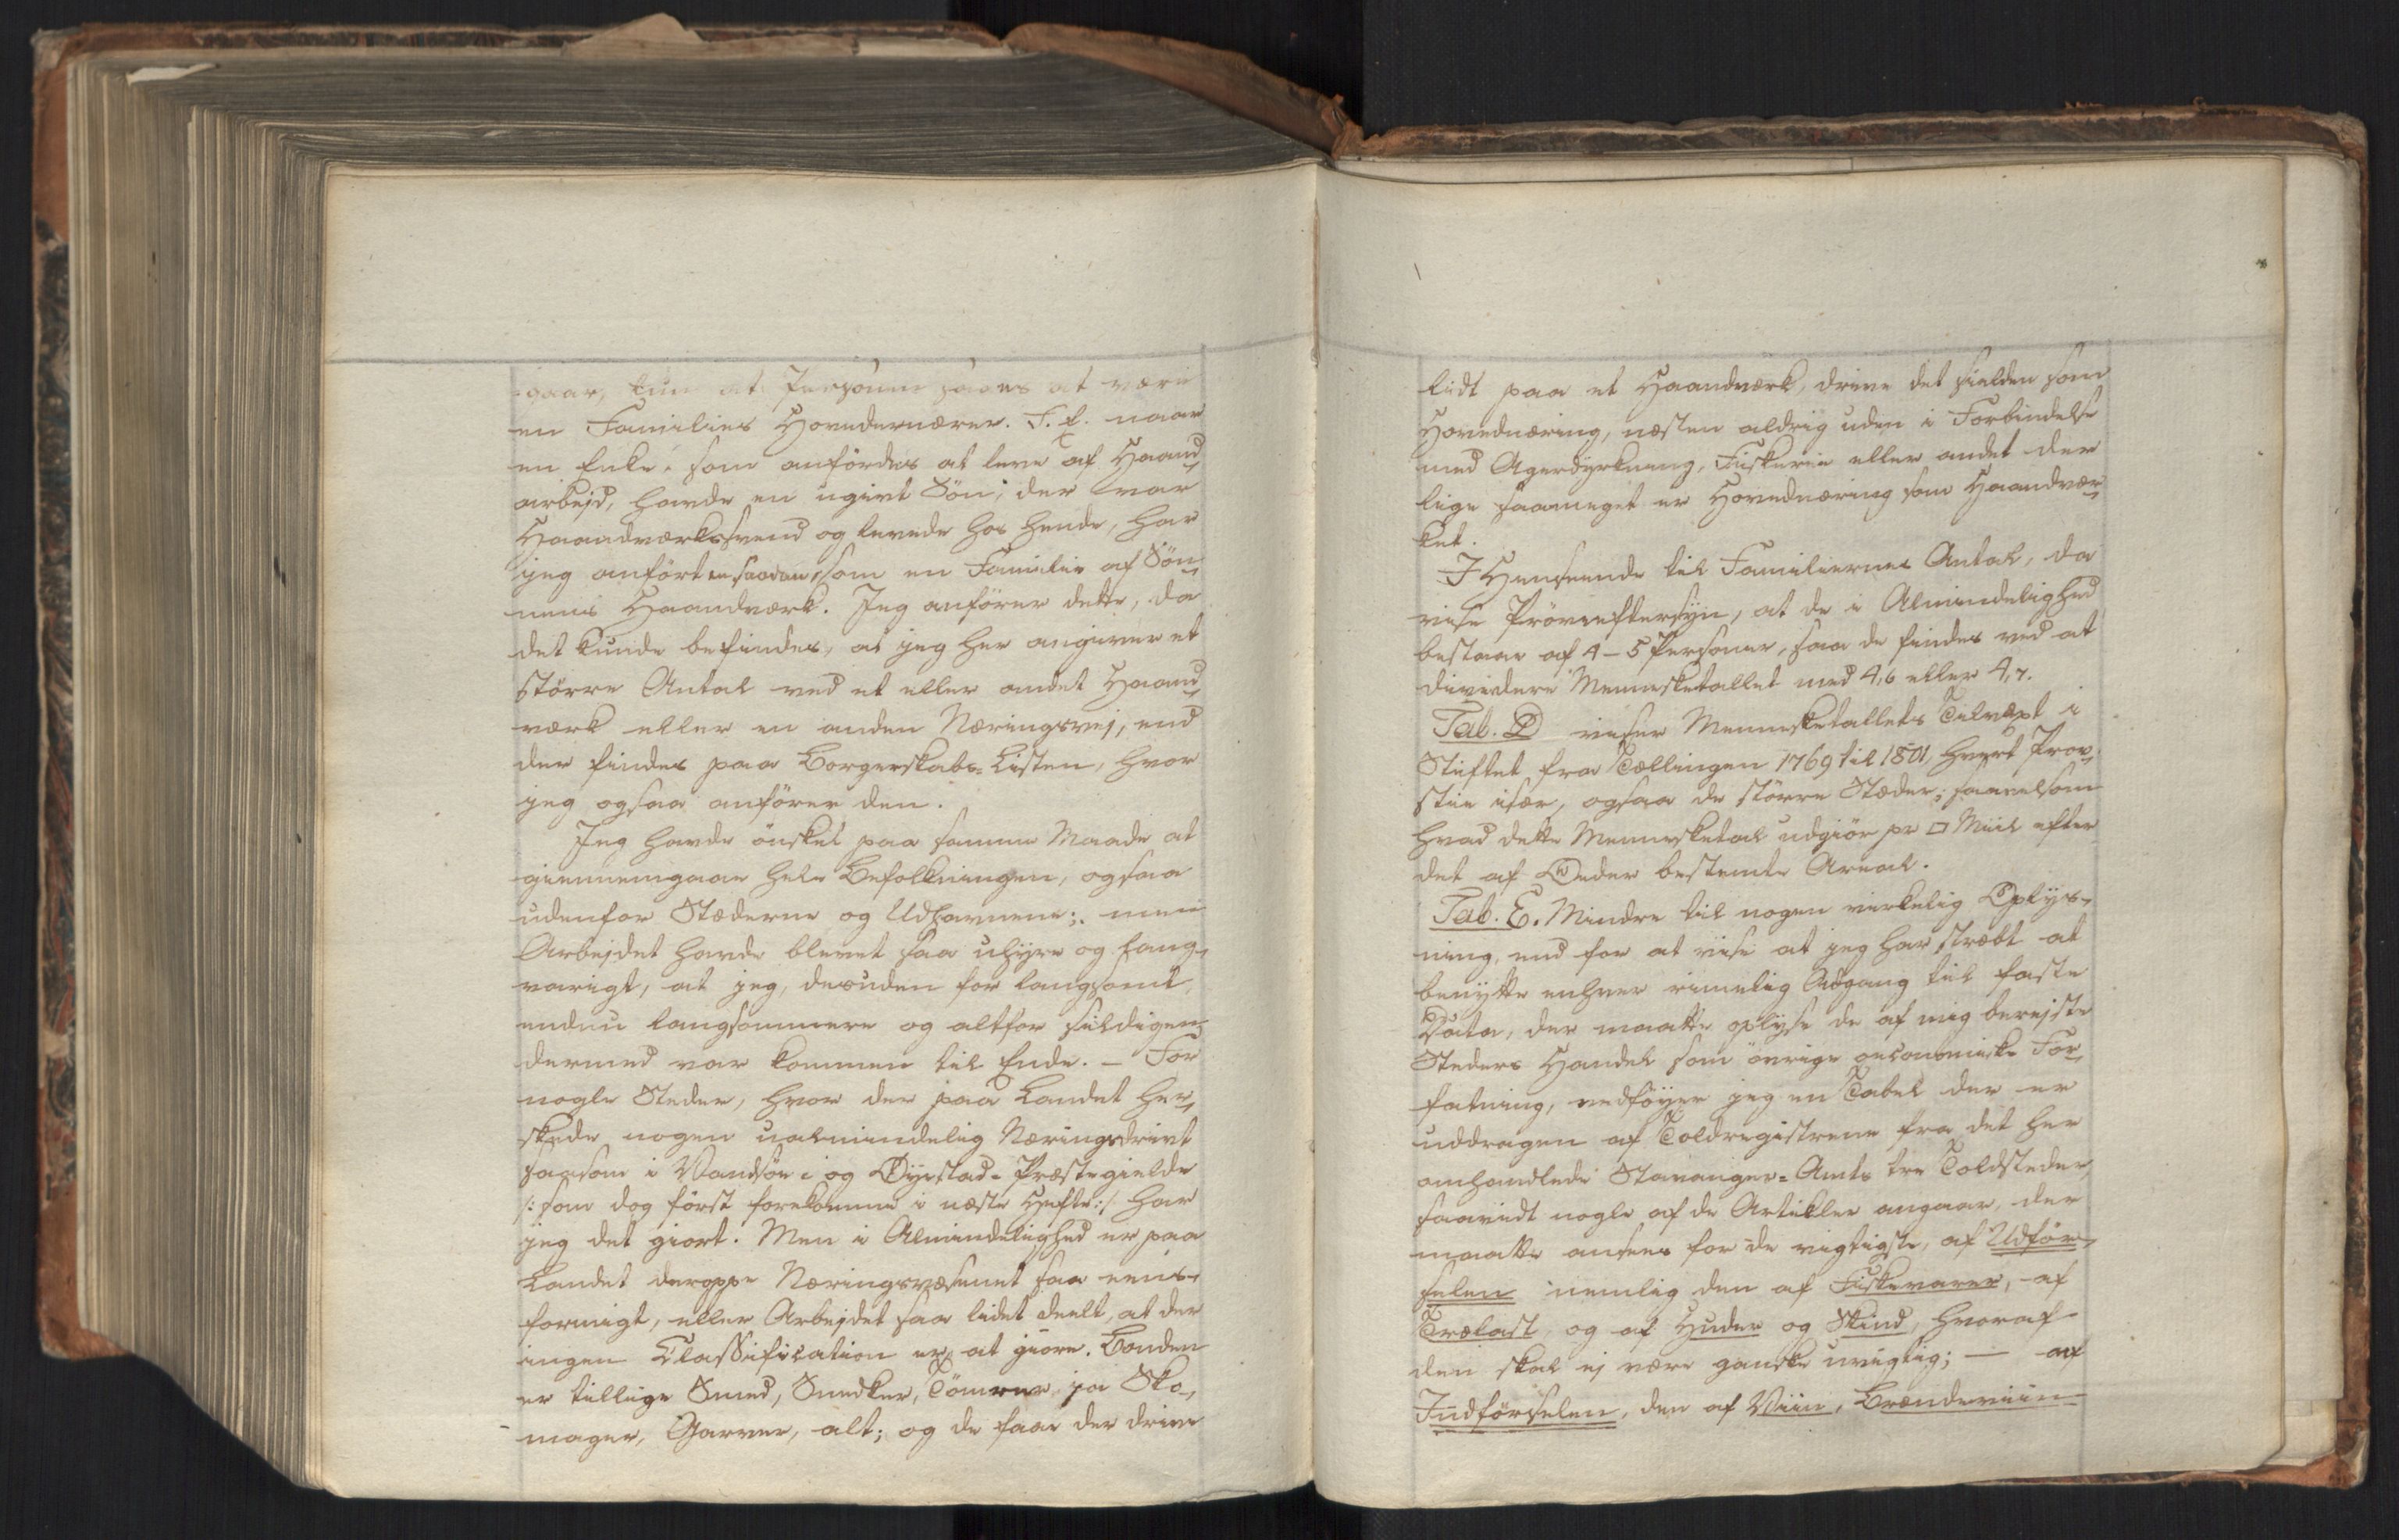 -gaar, kun at Personen saaes at være
en Families Hovedernærer. F. E. naar
en Enke, som anfördes at leve af Haand
arbejd, havde en ugivt Sön, der var
Haandværkssvend og levede hos hende, har
jeg anfört en saadan som en Familie af Sön
nens Haandværk. Jeg anförer dette, da
det kunde befindes, at jeg her angiver et
större Antal ved et eller andet Haand
værk eller en anden Næringsvej, end
der findes paa Borgerskabs-Listen, hvor
jeg ogsaa anförer den.
Jeg havde önsket paa samme Maade at
giennemgaae hele Befolkningen, ogsaa
udenfor Stæderne og Udhavnene; men
Arbejdet havde blevet saa uhyre og lang-
varigt, at jeg, desuden for langsomt,
endnu langsommere og altfor sildigen
dermed var kommen til Ende. – For
nogle Steder, hvor der paa Landet her-
skede nogen ualmindelig Næringsdrivt
saasom i Vandsöe i og Öyestad-Præstegielde
/: som dog först forekomme i næste Hefte :/ har
jeg det giort. Men i Almindelighed er paa
Landet deroppe Næringsvæsenet saa eens-
formigt, eller Arbejdet saa lidet deelt, at der
ingen Classification er at giöre. Bonden
er tillige Smed, Snedker, Tömrer, ja Sko-
mager, Garver, alt; og de faae der drive
lidt paa et Haandværk, drive det sielden som
Hovednæring, næsten aldrig uden i Forbindelse
med Agerdyrkning, Fiskerie eller andet der
lige saameget er Hovednæring som Haandvær
ket.
I Henseende til Familiernes Antal, da
vise Pröveeftersyn, at de i Almindelighed
bestaae af 4 – 5 Personer, saa de findes ved at
dividere Mennesketallet med 4,6 eller 4,7.
Tab. D viser Mennesketallets Tilvæxt i
Stiftet fra Tællingen 1769 til 1801, hvert Prov
stie især, ogsaa de större Stæder; saavelsom
hvad dette Mennesketal udgiör pr □ Miil efter
det af Veder bestemte Areal.
Tab. E. Mindre til nogen virkelig Oplys-
ning, end for at vise at jeg har stræbt at
benytte enhver rimelig Adgang til faste
Data, der maatte oplyse de af mig berejste
Steders Handel som övrige oeconomiske For
fatning, vedföyer jeg en Tabel der er
uddragen af Toldregistrene fra det her
omhandlede Stavanger-Amts tre Toldsteder,
saavidt nogle af de Artikler angaar, der
maatte ansees for de vigtigste, af Udför-
selen nemlig den af Fiskevarer, – af
Trælast, og af Huder og Skind, hvoraf
den skal ej være ganske uvigtig; — af
Indförselen, den af Viin, Brændeviin